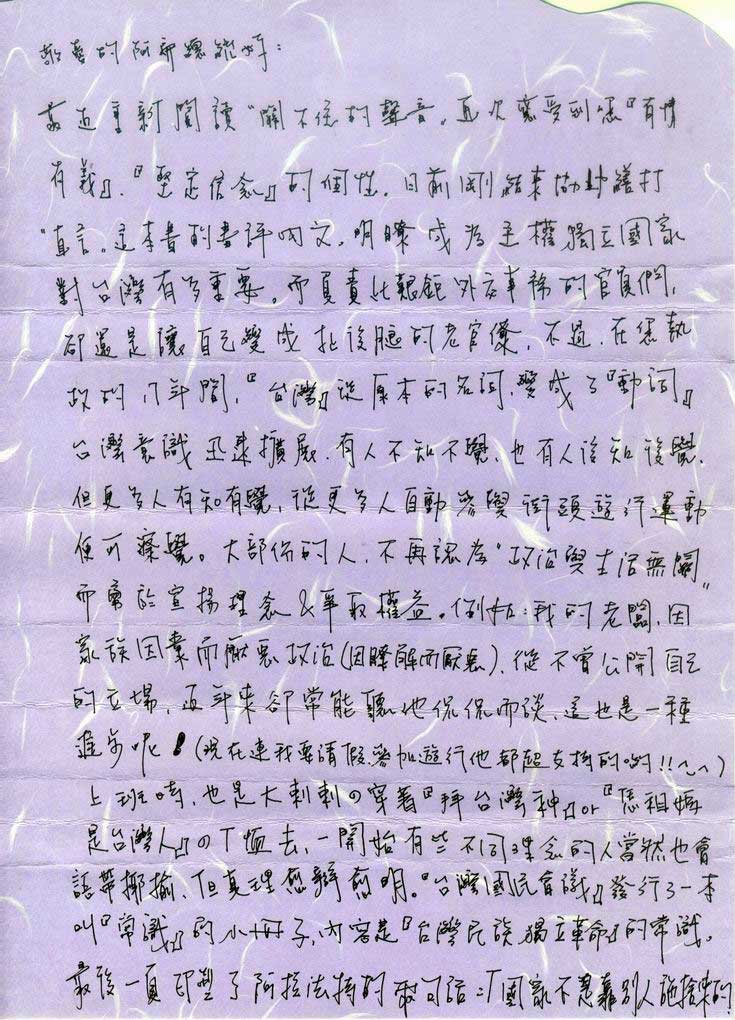 敬愛的阿扁總統好：
最近重新閱讀“關不住的聲音”，再次感受到您『有情
有義』、『堅定信念』的個性。日前剛結束協助繕打
“直言”這本書的書評內文，明瞭成為主權獨立國家
對台灣有多重要。而負責此艱鉅外交事務的官員們，
卻還是讓自己變成扯後腿的老官僚，不過，在您執
政的八年間，『台灣』從原本的名詞，變成了『動詞』
台灣意識迅速擴展，有人不知不覺，也有人後知後覺，
但更多人有知有覺，從更多人自動參與街頭遊行運動
便可察覺。大部份的人，不再認為“政治與生活無關”
而勇於宣揚理念＆爭取權益。例如：我的老闆，因
家族因素而厭惡政治(因瞭解而厭惡)，從不曾公開自己
的立場，近年來卻常能聽他侃侃而談，這也是一種
進步呢！(現在連我要請假參加遊行他都超支持的喲!!^_^)
上班時，也是大剌剌の穿著『拜台灣神』or『恁祖媽
是台灣人』のT恤去，一開始有些不同理念的人當然也會
語帶揶揄，但真理愈辯愈明。『台灣國民會議』發行了一本
叫『常識』的小冊子，內容是『台灣民族獨立革命』的常識。
最後一頁印製了阿拉法特的一句話：「國家不是靠別人施捨來的！